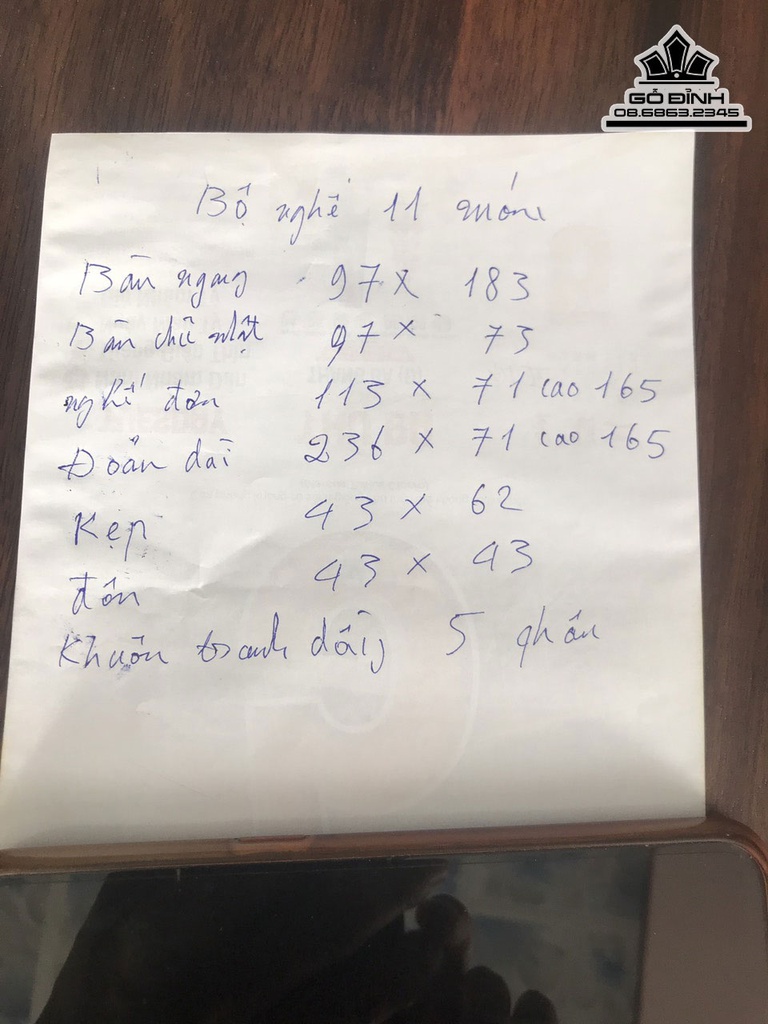 GỖ ĐỈNH
08.6863.2345
Bộ nghế 11 món
Bàn ngang 97 x 183
Bàn chữ nhật 97 x 73
nghế đơn 113 x 71 cao 165
Đoản dài 236 x 71 cao 165
Kẹp 43 x 62
đôn 43 x 43
Khuôn tranh dầy 5 phân